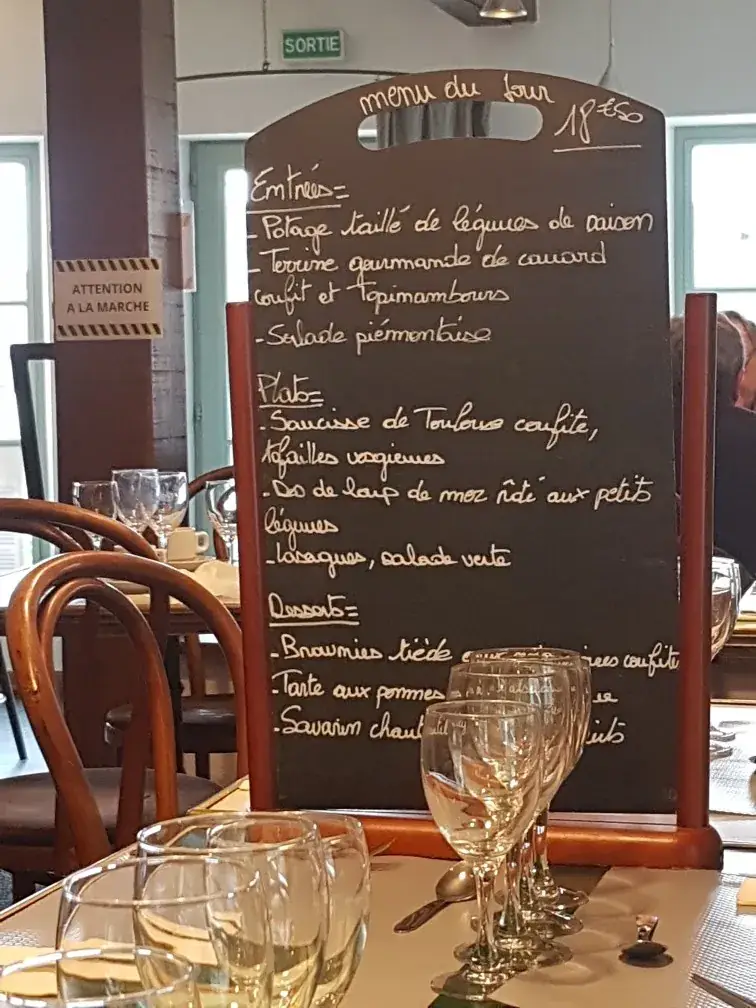 SORTIE
menu du Jour
18 €50
ATTENTION
A LA MARCHE
Entrées=
- Potage taillé de légumes de saison
- Terrine gourmande de canard
confit et Topinambours
- Salade piémontaise
Plats=
- Saucisse de Toulouse confite,
tofailles vosgiennes
- Dos de loup de mer rôti aux petits
légumes
- Lasagnes, salade verte
Desserts=
- Brownies tiède aux confites
- Tarte aux pommes
- Savarin